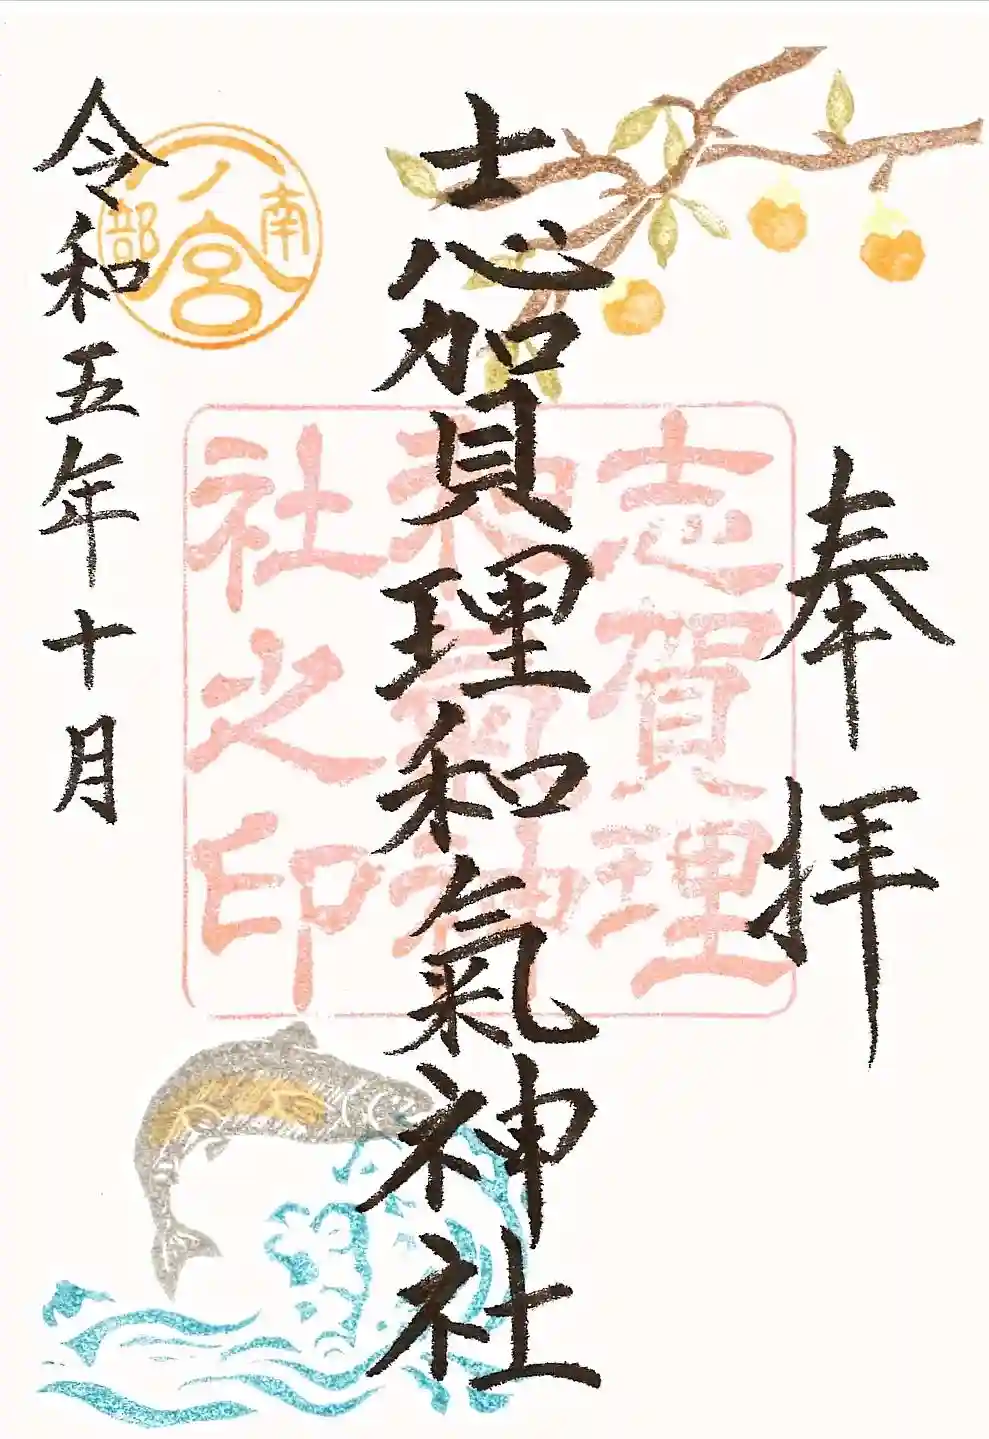 奉拝
志賀理和氣神社
志賀理
和氣神
社之印
南部一ノ宮
令和五年十月